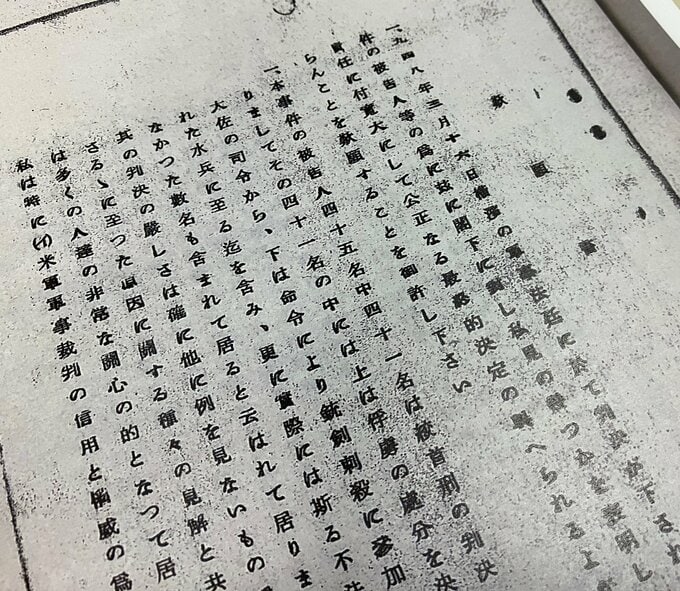 歎願書
一、一九四八年三月十六日横濱の軍事法廷に於て判決が下され
件の被告人等の爲に茲に閣下に對し私見の幾つかを表明し
責任に付寛大にして公正なる最終的決定の與へられるよ
らんことを歎願することを御許し下さい
一、本事件の被告人四十五名中四十一名は絞首刑の判決
りましてその四十一名の中には上は俘虜の處分を決
大佐の司令から、下は命令により銃劍刺殺に參加
れた水兵に至る迄を含み、更に實際には斯る不法
なかつた數名も含まれて居ると云はれて居りま
其の判決の嚴しさは確に他に例を見ないもの
さるゝに至つた原因に關する種々の見解と共
は多くの人達の非常な關心の的となつて居
私は特に(イ)米軍軍事裁判の信用と權威の爲